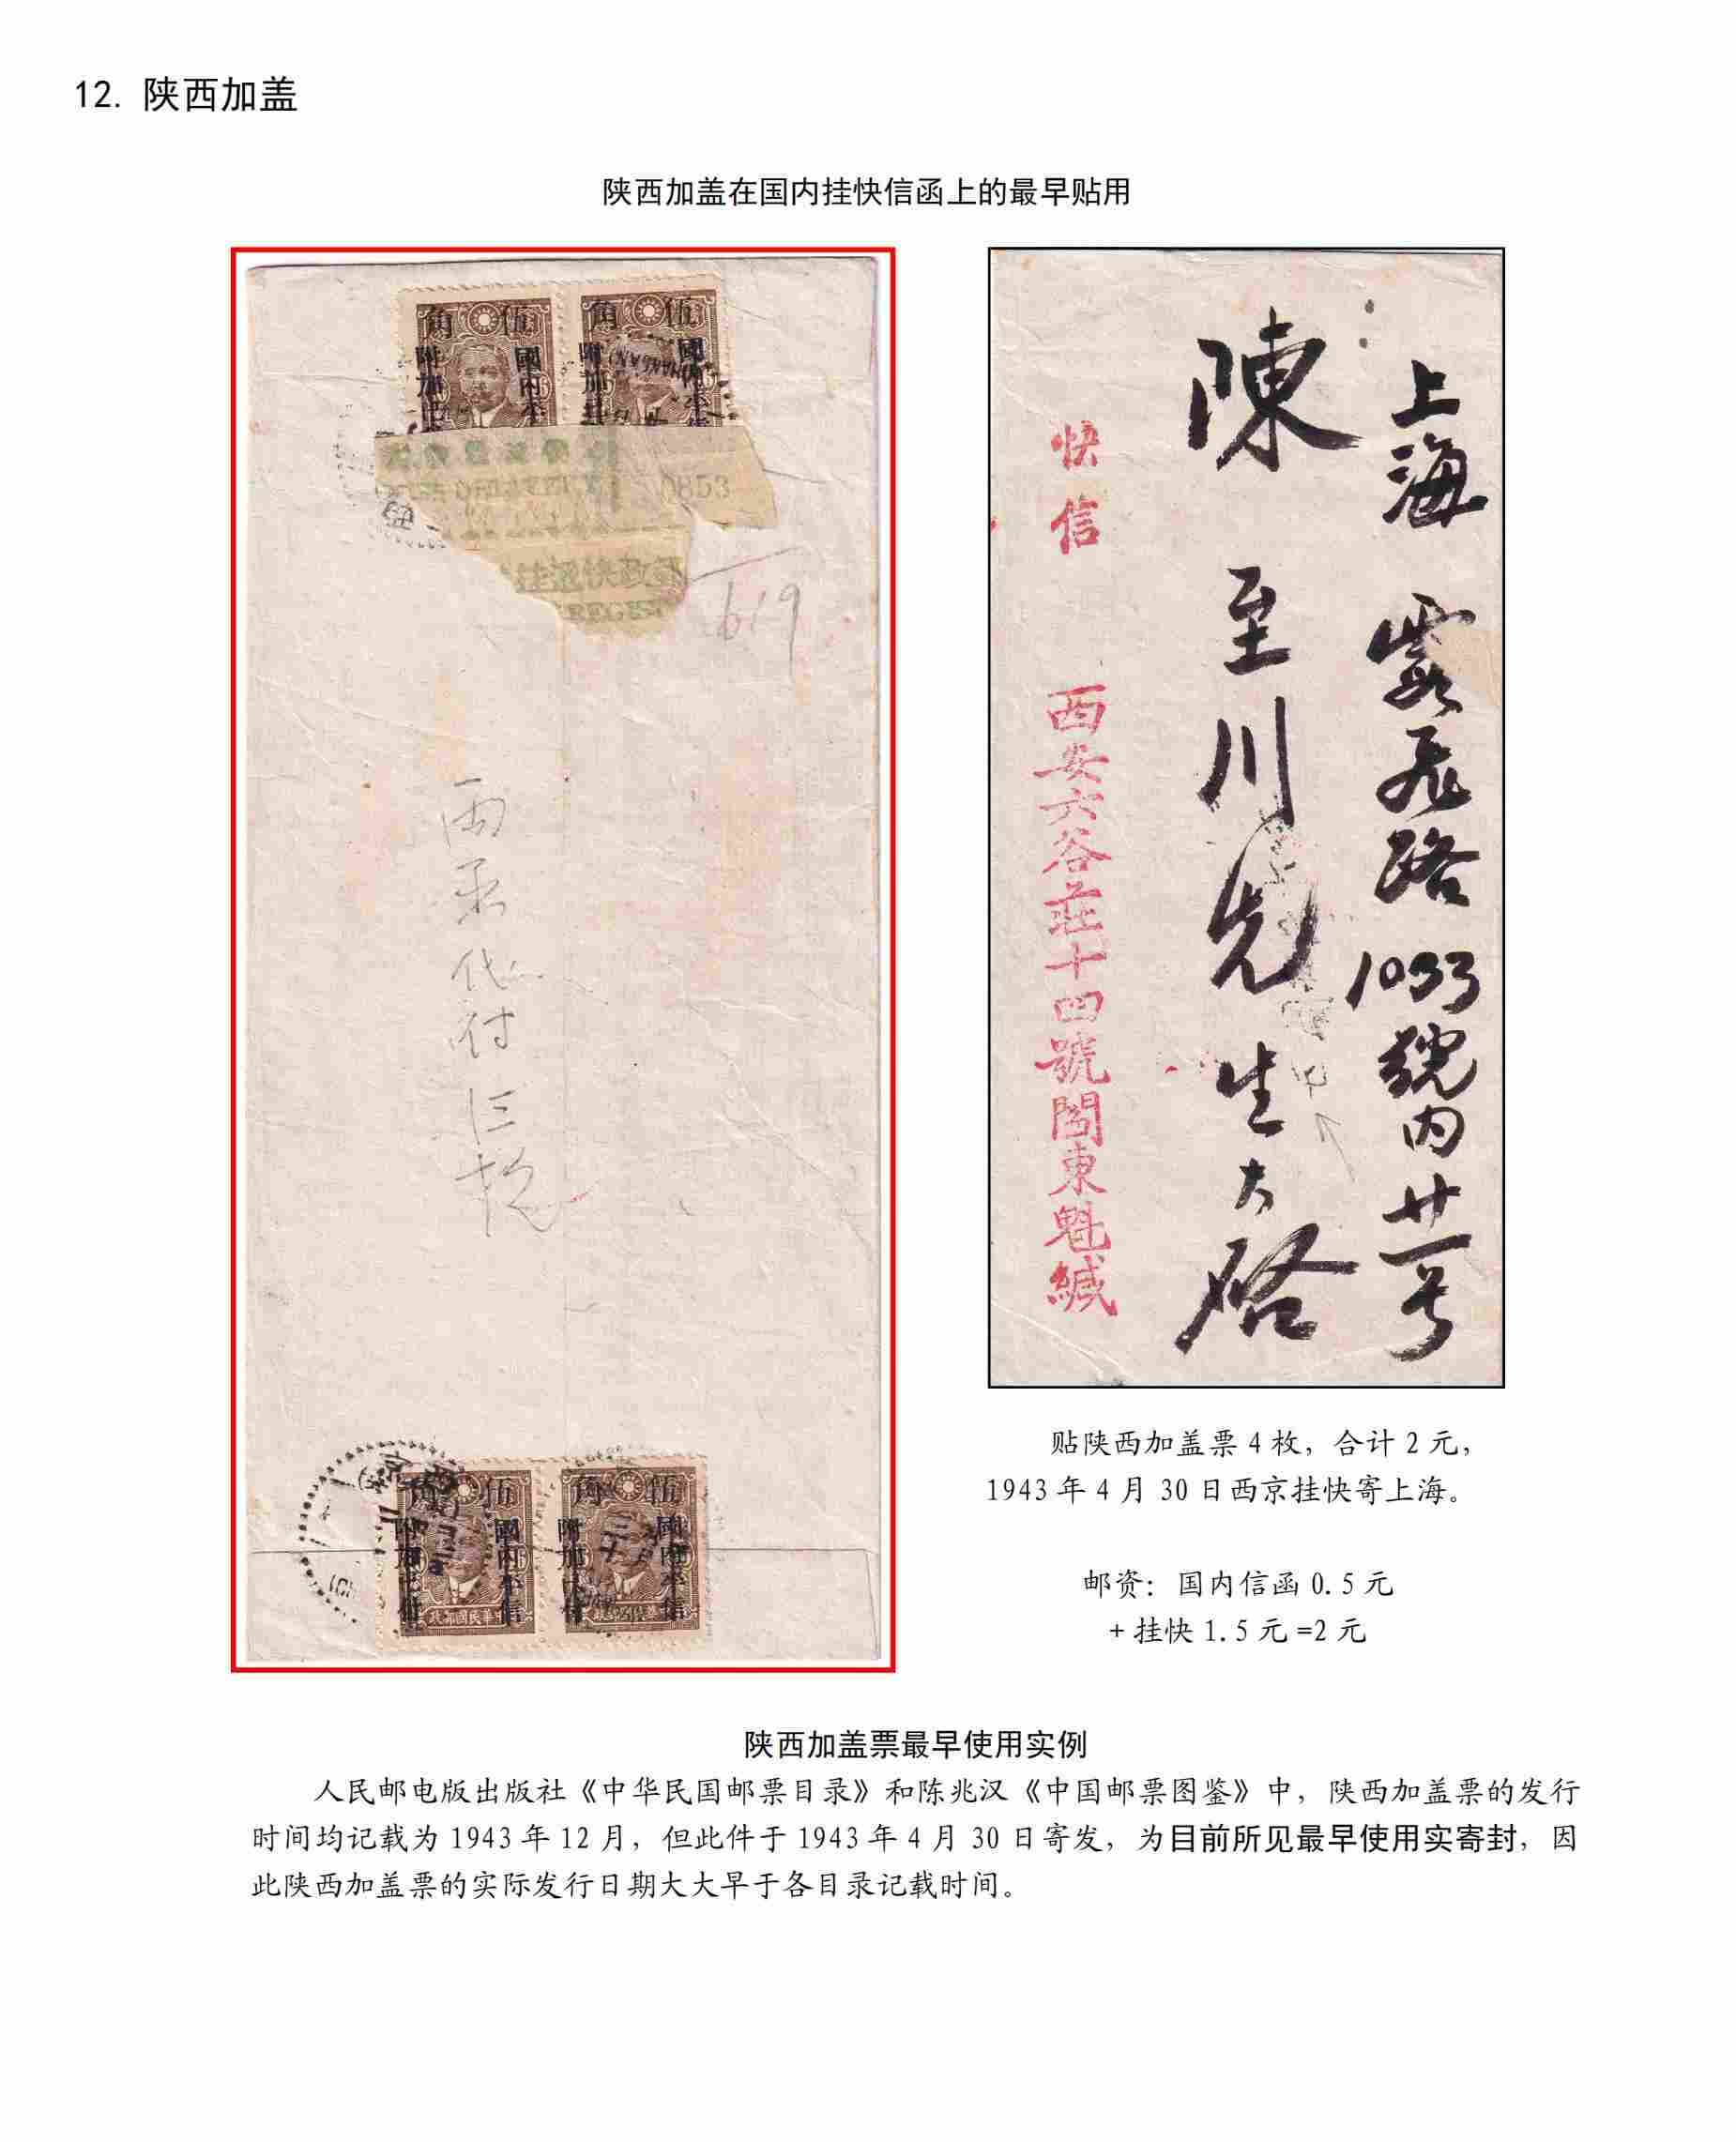 12. 陕西加盖
陕西加盖在国内挂快信函上的最早贴用
角 伍 角 伍
附加 國內平信
0853
挂逐快政
REGIS
619
代付
角 伍 角 伍
附加 國內平信 附加 國內平信
政郵國民華中
上海霞飛路1033號内廿一号
陳至川先生大啓
快信
西安六谷莊十四號閻東魁緘
贴陕西加盖票 4 枚，合计 2 元，
1943 年 4 月 30 日西京挂快寄上海。
邮资：国内信函 0.5 元
+ 挂快 1.5 元 =2 元
陕西加盖票最早使用实例
人民邮电版出版社《中华民国邮票目录》和陈兆汉《中国邮票图鉴》中，陕西加盖票的发行
时间均记载为 1943 年 12 月，但此件于 1943 年 4 月 30 日寄发，为目前所见最早使用实寄封，因
此陕西加盖票的实际发行日期大大早于各目录记载时间。